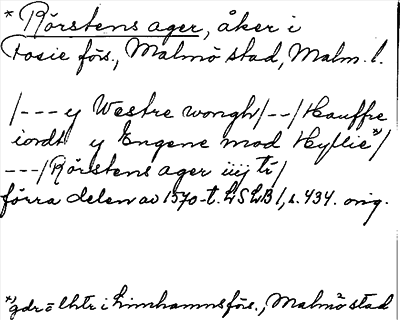 * Rörstens ager, åker i
Fosie förs., Malmö stad, Malm. l.
/--- y Westre wongh/--/Hauffre
iordt y Engene mod Hyllie*/
---/Rörstens ager iiij tr/
förra delen av 1570-t. LSLB/, s. 434. orig.
*/gdr = lhtr i Limhamns förs., Malmö stad